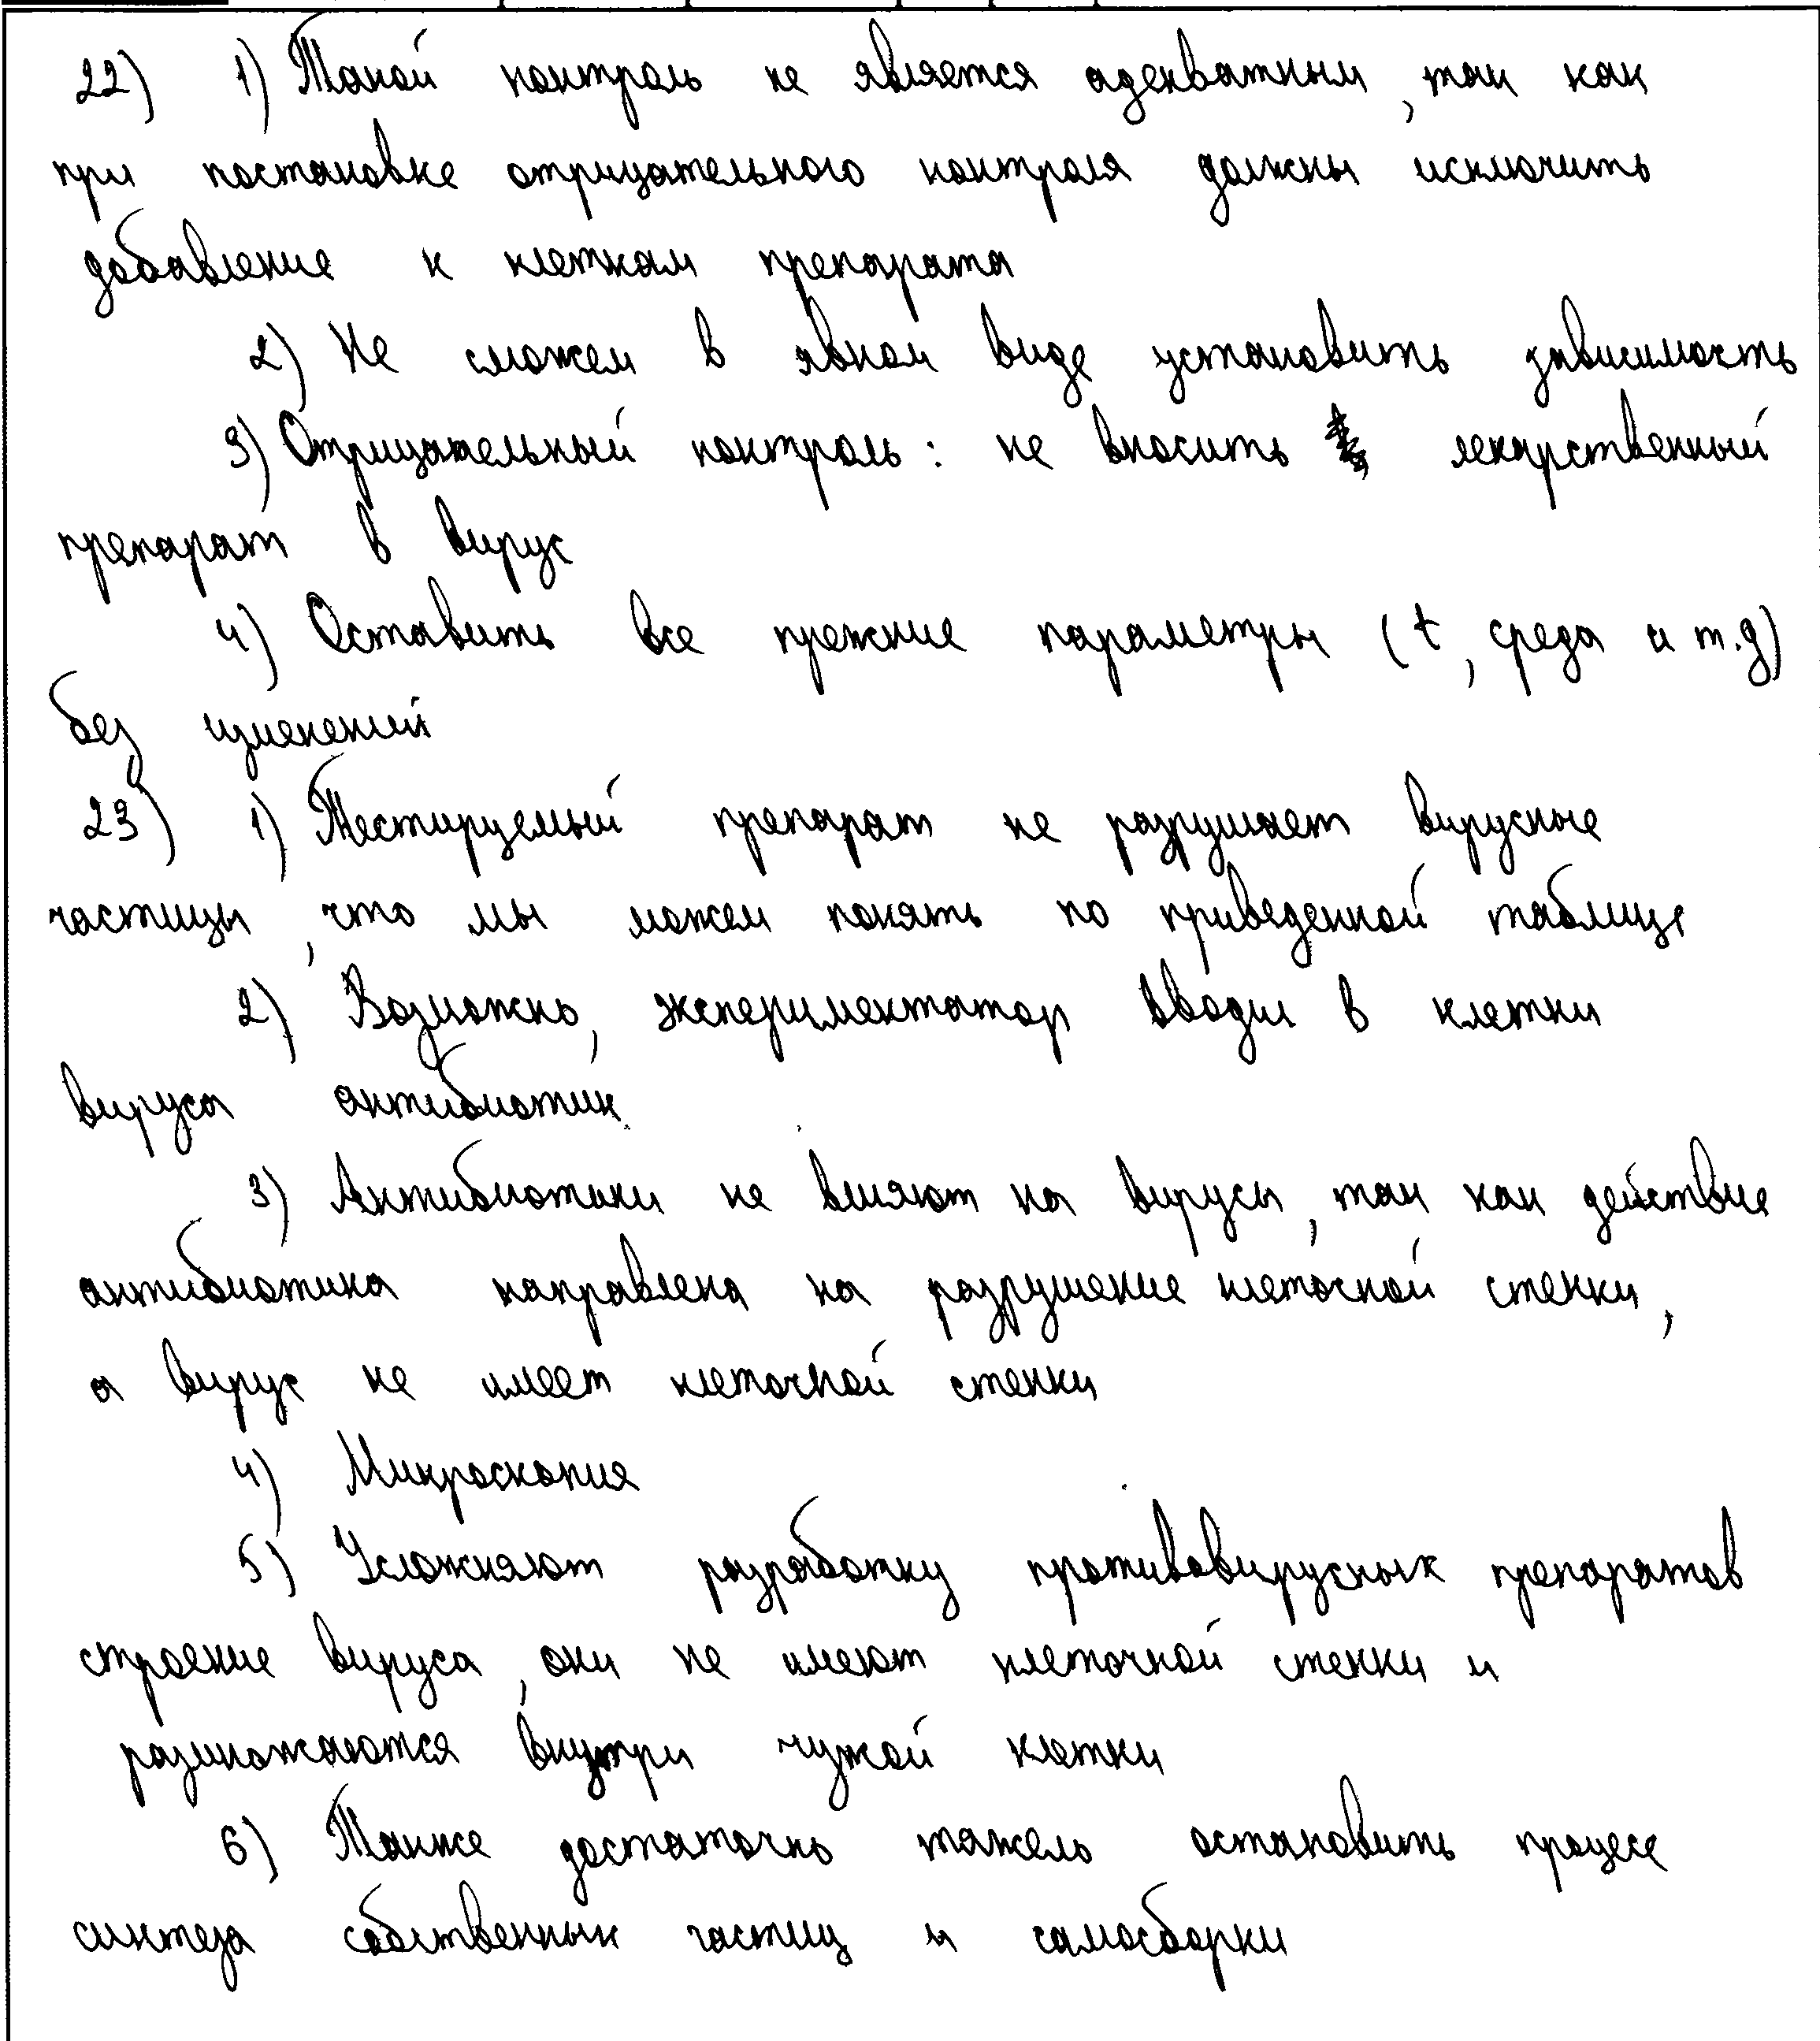 22) 1) Такой контроль не является адекватным, так как
при постановке отрицательного контроля должны исключить
добавление к клеткам препарата
2) Не сможем в явном виде установить зависимость
3) Отрицательный контроль: не вносить лекарственный
препарат в вирус
4) Оставить все прежние параметры (t, среда и т.д)
без изменений
23) 1) Тестируемый препарат не разрушает вирусные
частицы, что мы можем понять по приведенной таблице
2) Возможно, экспериментатор вводил в клетки
вируса антибиотик
3) Антибиотики не влияют на вирусы, так как действие
антибиотика направлена на разрушение клеточной стенки,
а вирус не имеет клеточной стенки
4) Микроскопия
5) Усложняют разработку противовирусных препаратов
строение вируса, они не имеют клеточной стенки и
размножаются внутри чужой клетки
6) Также достаточно тяжело остановить процесс
синтеза собственных частиц и самосборки